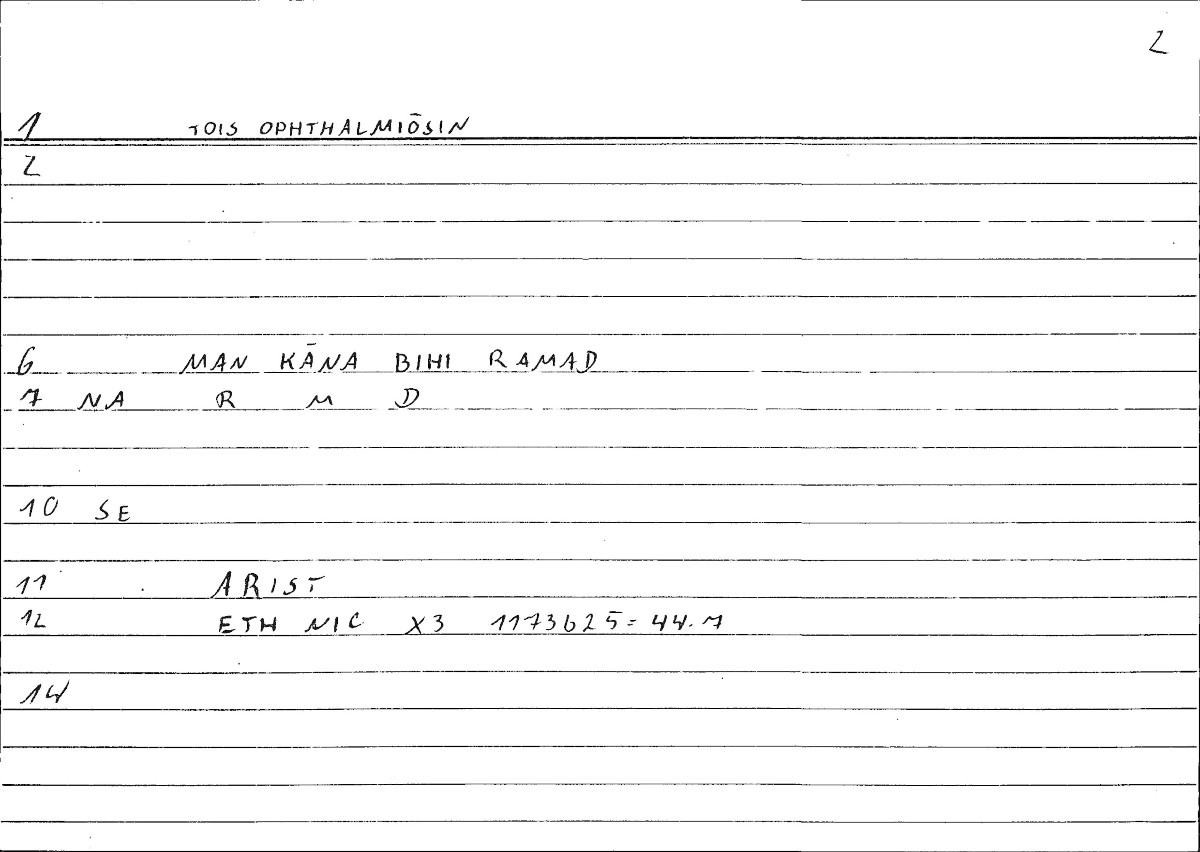 2
1 TOIS OPHTHALMIŌSIN
2
6 MAN KĀNA BIHI RAMAD
7 NA R M D
10 SE
11 ARIST
12 ETH NIC X3 1173b25=44.7
14